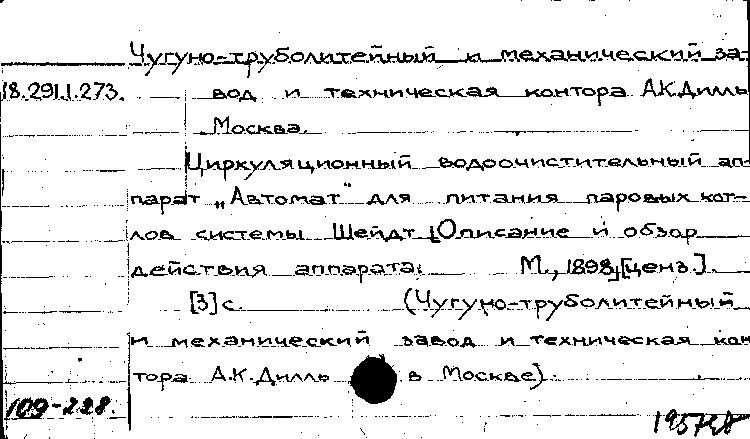 Чугуно-труболитейный и механический за-
18.291.1.273. вод и техническая контора А.К.Дилль
Москва.
Циркуляционный водоочистительный ап-
парат „Автомат" для питания паровых кот-
лов системы Шейдт. [Описание и обзор
действия аппарата. М., 1898, [ценз.].
[3] с. (Чугуно-труболитейный
и механический завод и техническая кон
тора А.К.Дилль в Москве).
109-228.